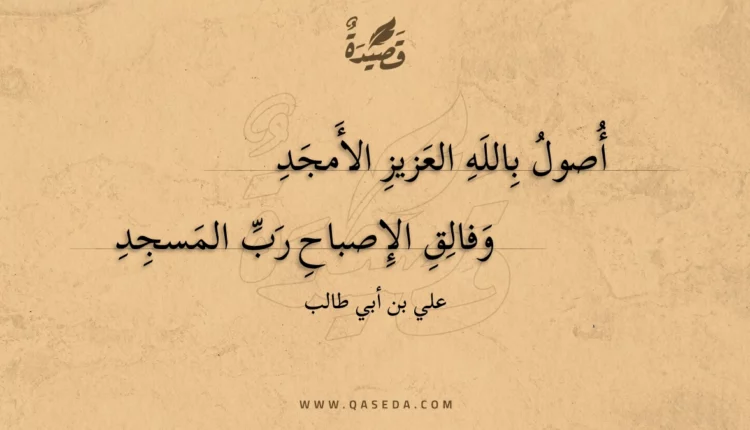 قَصِيْدَةٌ
أُصولُ بِاللَهِ العَزيزِ الأَمجَدِ
وَفالِقِ الإِصباحِ رَبِّ المَسجِدِ
علي بن أبي طالب
WWW.QASEDA.COM